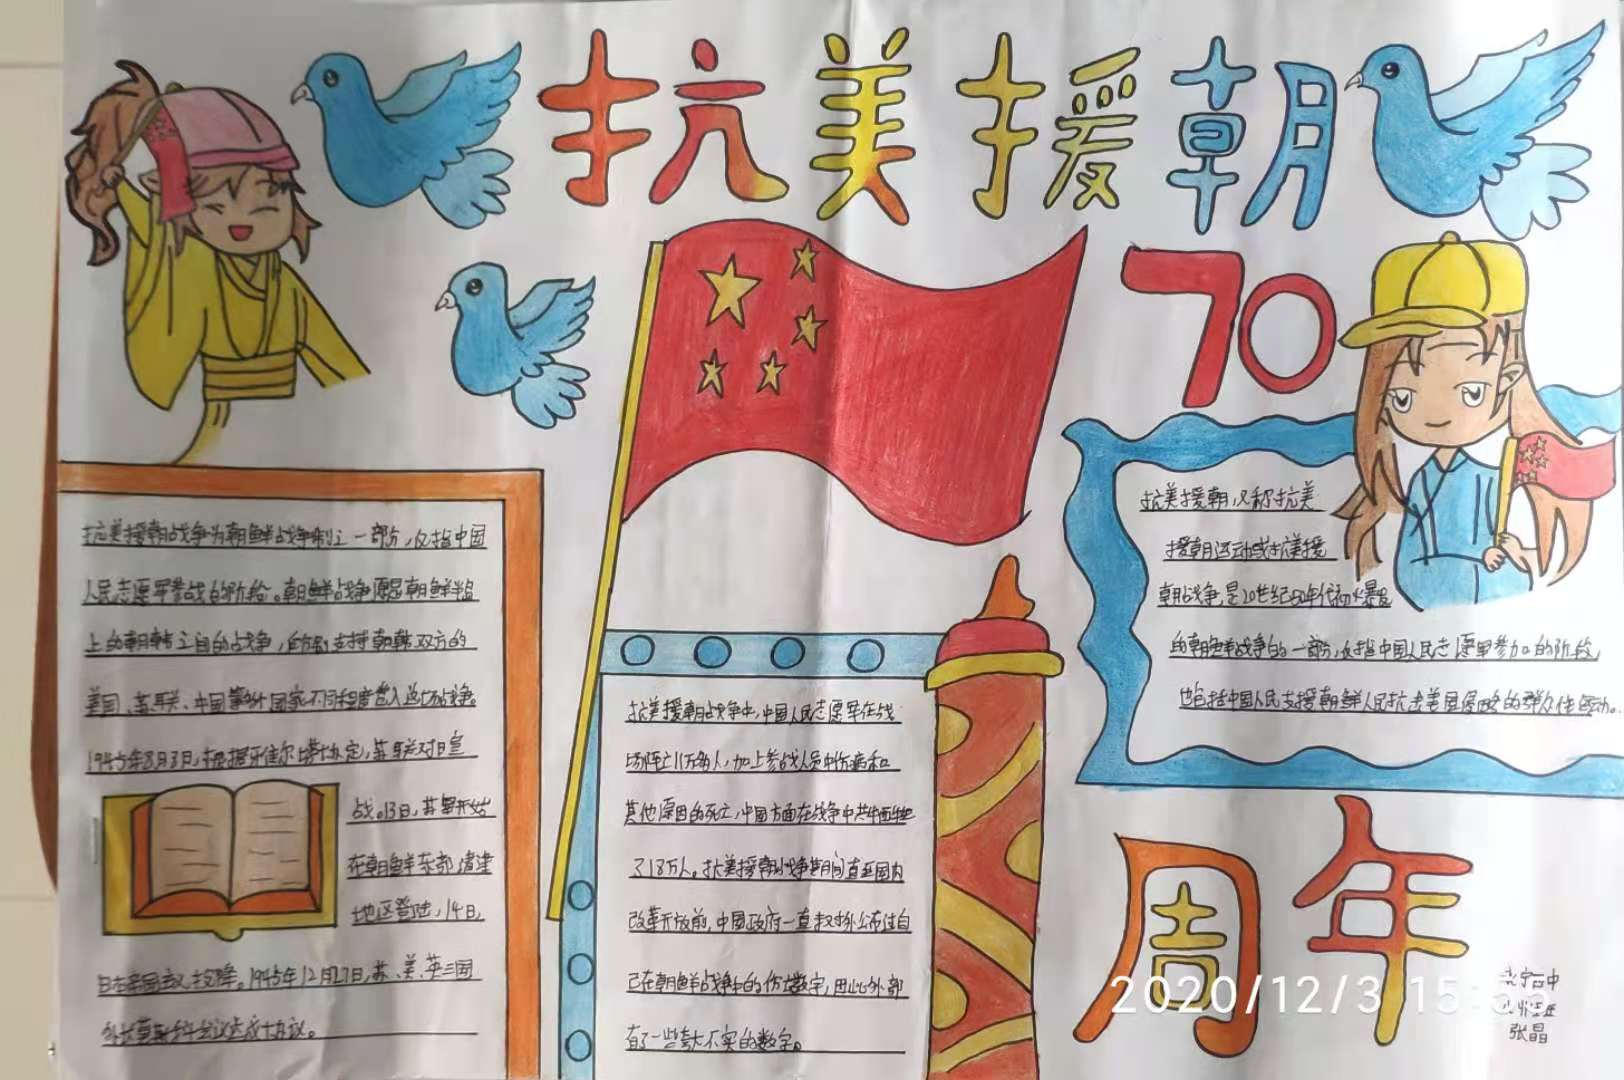 抗美援朝
70
周年
抗美援朝战争为朝鲜战争的一部分,仅指中国
人民志愿军参战的阶段。朝鲜战争原是朝鲜半岛
上的朝韩之间的战争,后分别支持朝韩双方的
美国、苏联、中国等外国家不同程度卷入这场战争。
1945年8月3日,根据牙佳尔塔协定,苏联对日宣
战。13日,苏军开始
在朝鲜东部清津
地区登陆,14日,
日本帝国主义投降。1945年12月27日,苏、美、英三国
外长莫斯科会议达成协议。
抗美援朝战争中,中国人民志愿军在战
场阵亡11万多人,加上参战人员中伤病和
其他原因的死亡,中国方面在战争中共牺牲
了18万人。抗美援朝战争期间直至国内
改革开放前,中国政府一直未对外公布过自
己在朝鲜战争中的伤亡数字,因此外部
有了一些夸大不实的数字。
抗美援朝,又称抗美
援朝运动或抗美援
朝战争,是20世纪50年代初爆发
的朝鲜战争的一部分,仅指中国人民志愿军参加的阶段,
也包括中国人民支援朝鲜人民抗击美国侵略的群众性运动。
2020/12/3 15:55
张晶